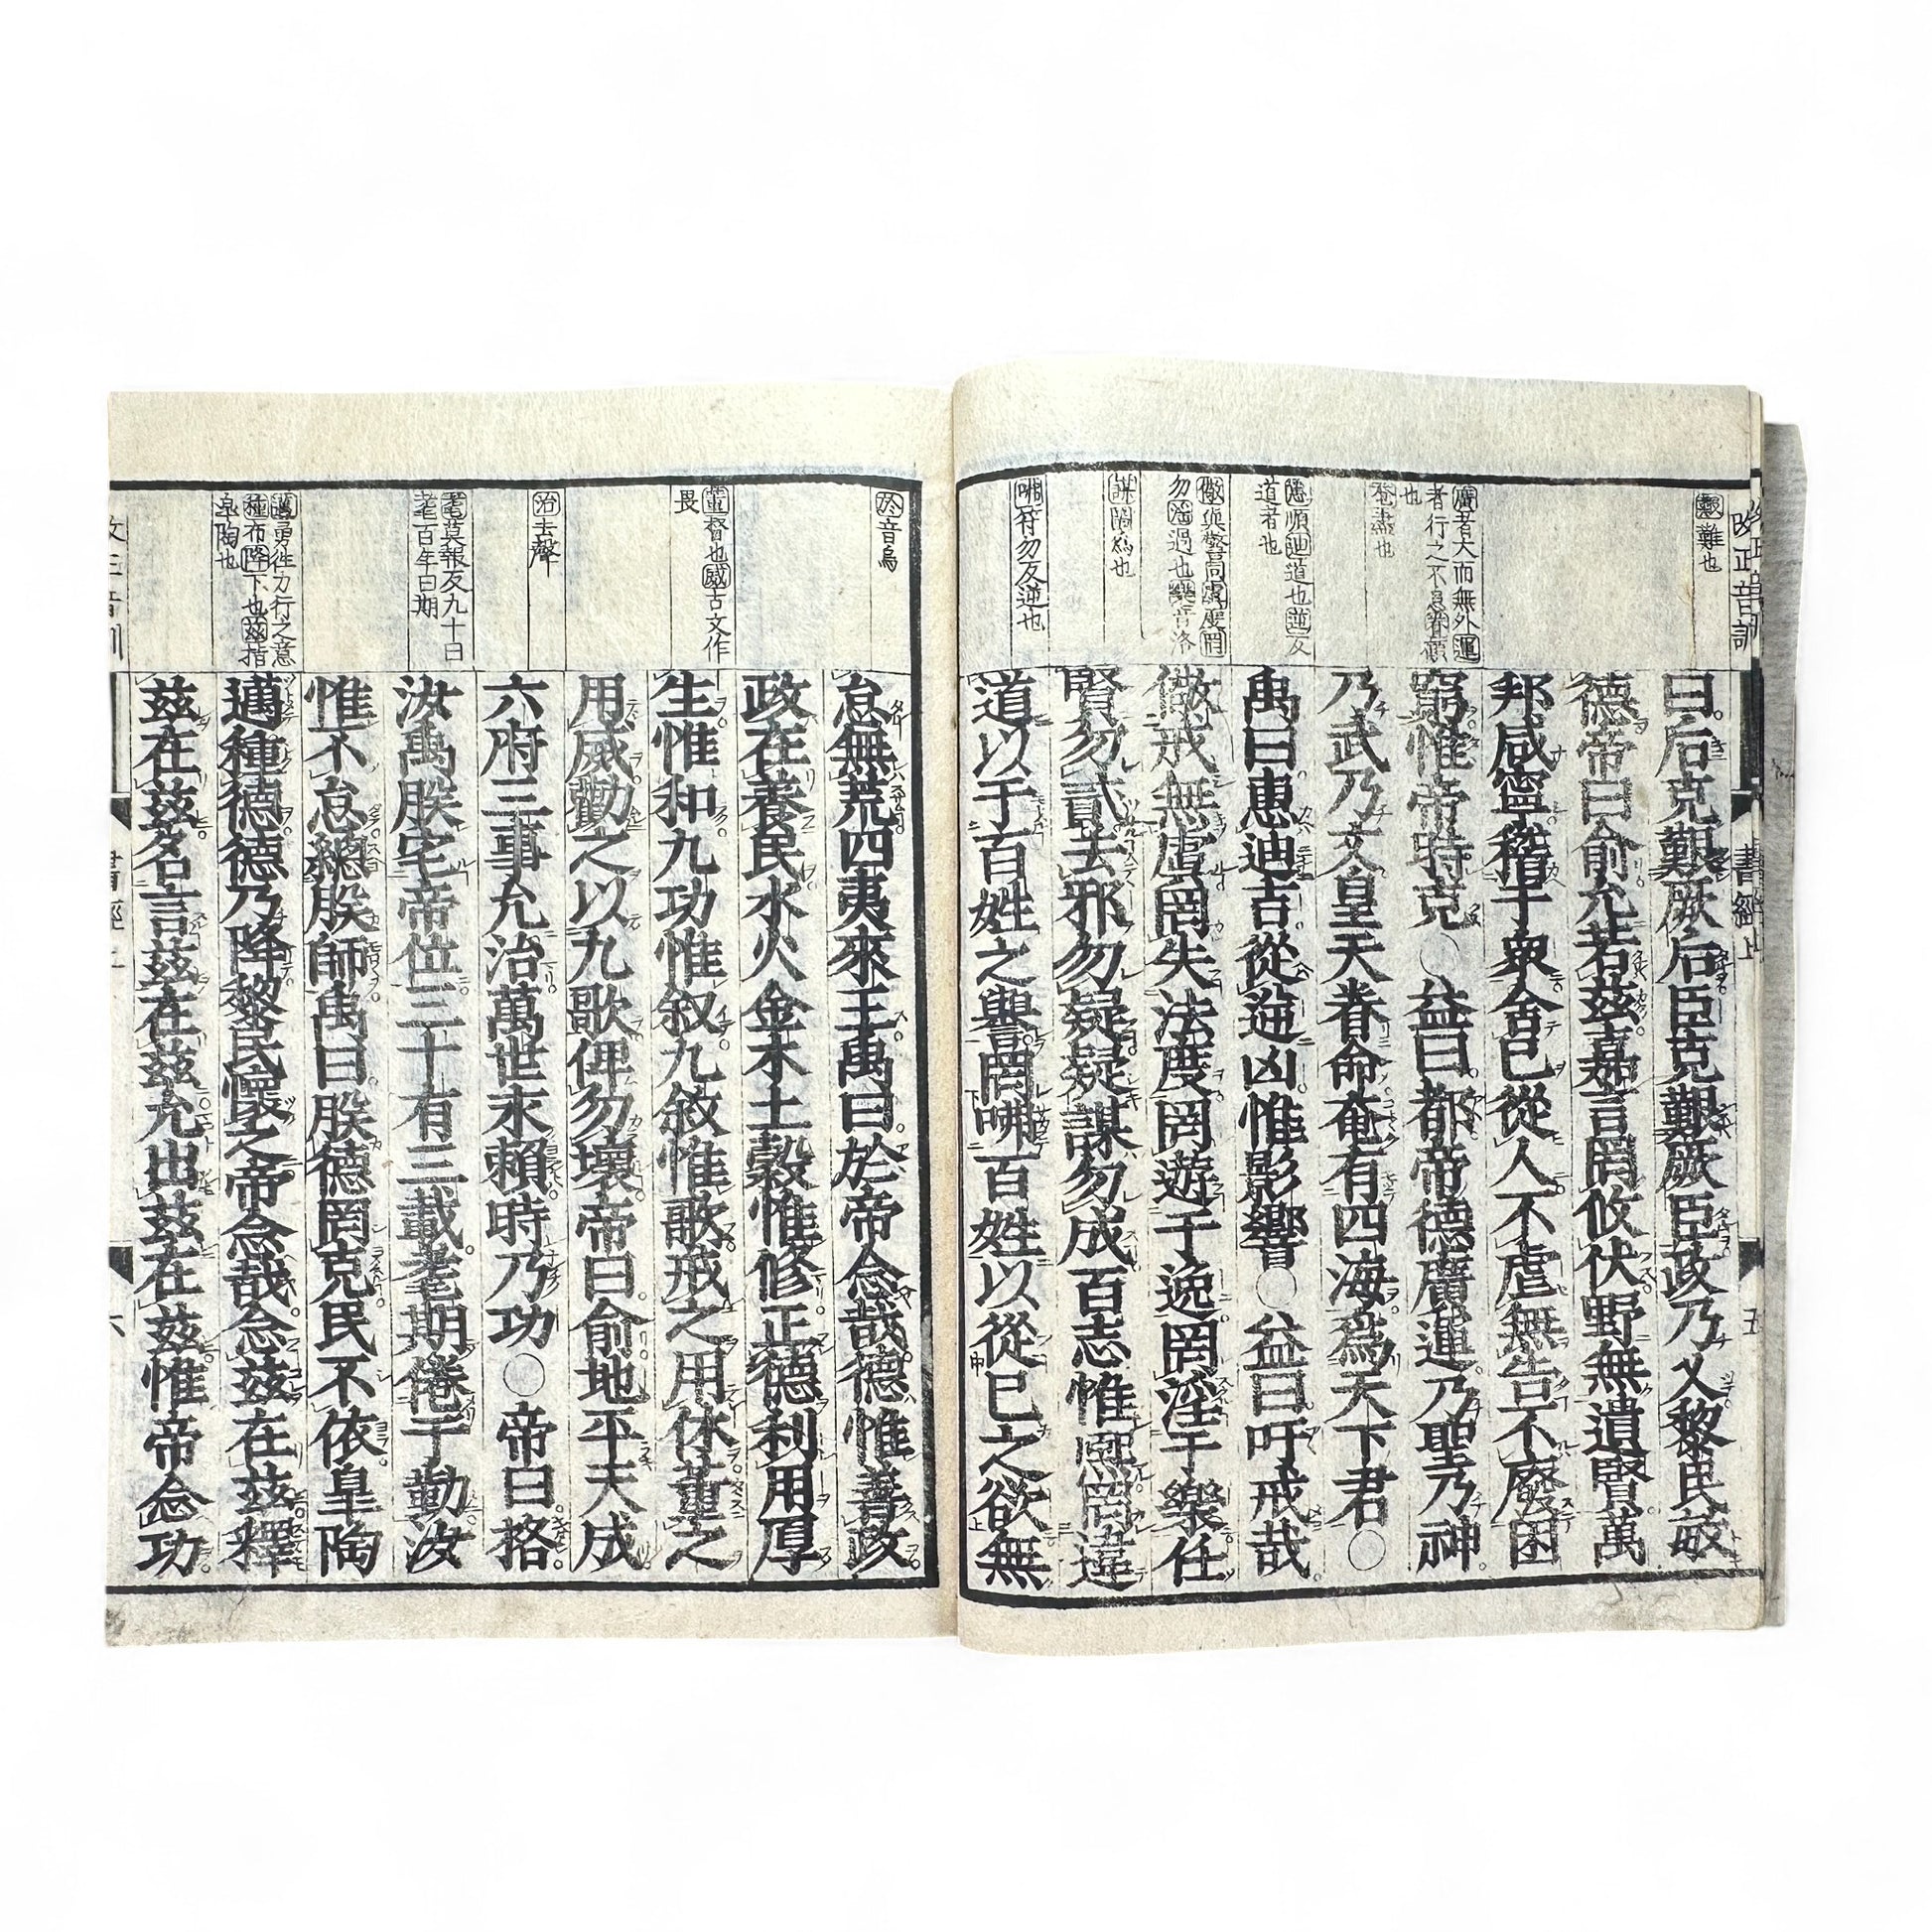 改正音訓
書經上
五
艱難也
曰后克艱厥后臣克艱厥臣政乃乂黎民敏
德帝曰俞允若茲嘉言罔攸伏野無遺賢萬
邦咸寧稽于衆舍己從人不虐無告不廢困
廣者大而無外運
者行之不息眷顧
也
窮惟帝時克○益曰都帝德廣運乃聖乃神
奄盡也
乃武乃文皇天眷命奄有四海爲天下君○
惠順迪道也逆反
道者也
禹曰惠迪吉從逆凶惟影響○益曰吁戒哉
儆與警同虞度罔
勿淫過也樂音洛
儆戒無虞罔失法度罔遊于逸罔淫于樂任
謀圖爲也
賢勿貳去邪勿疑疑謀勿成百志惟熙罔違
咈符勿反逆也
道以干百姓之譽罔咈百姓以從己之欲無
於音烏
怠無荒四夷來王禹曰於帝念哉德惟善政
政在養民水火金木土穀惟修正德利用厚
董督也威古文作
畏
生惟和九功惟叙九敘惟歌戒之用休董之
用威勸之以九歌俾勿壞帝曰俞地平天成
治去聲
六府三事允治萬世永賴時乃功○帝曰格
耄莫報反九十曰
耄百年曰期
汝禹朕宅帝位三十有三載耄期倦于勤汝
惟不怠總朕師禹曰朕德罔克民不依皐陶
邁勇往力行之意
種布降下也茲指
皐陶也
邁種德德乃降黎民懷之帝念哉念茲在茲釋
茲在茲名言茲在茲允出茲在茲惟帝念功
六